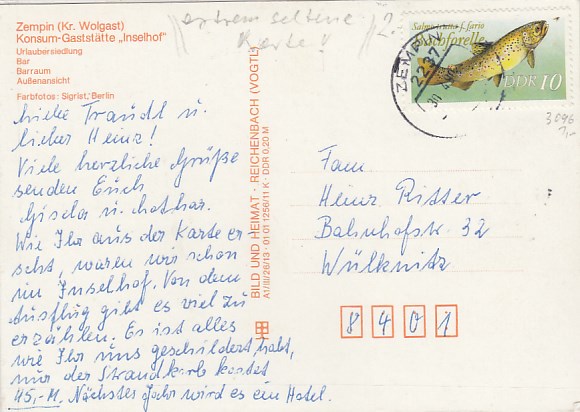 Zempin (Kr. Wolgast)
Konsum-Gaststätte „Inselhof"
Urlaubersiedlung
Bar
Barraum
Außenansicht
Farbfotos: Sigrist, Berlin
extrem seltene
Karte!
Salmo trutta f. fario
Bachforelle
DDR 10
ZEMPIN
2237
3096
1,-
Liebe Traudl u.
lieber Heinz!
Viele herzliche Grüße
senden Euch
Gisela u. Lothar.
Wie Ihr aus der Karte er-
seht, waren wir schon
im Inselhof. Von dem
Ausflug gibt es viel zu
erzählen. Es ist alles
wie Ihr uns geschildert habt,
nur der Strandkorb kostet
45,-M. Nächstes Jahr wird es ein Hotel.
BILD UND HEIMAT · REICHENBACH (VOGTL)
A1/III/26/13 · 01 01 11 256/11 K · DDR 0,20 M
Fam
Heinz Ritter
Bahnhofstr. 32
Wülknitz
8401